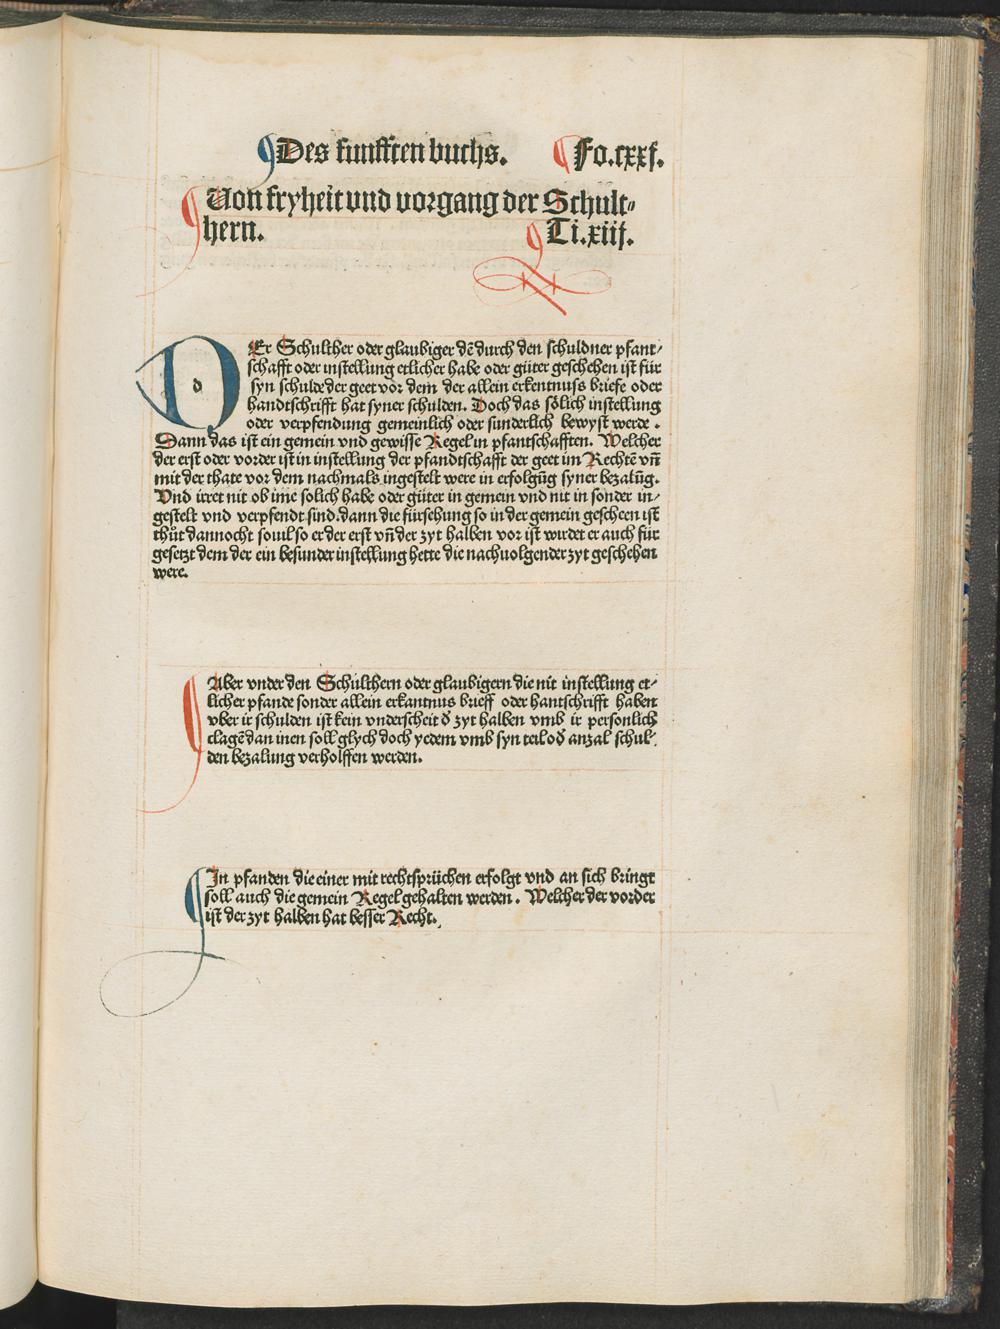 Des funfften buchs. Fo.cxxj.
Von fryheit vnd vorgang der Schult⸗
hern. Ti.xiij.
DEr Schulther oder glaubiger dē durch den schuldner pfant⸗
schafft oder instellung etlicher habe oder güter geschehen ist für
syn schulde der geet vor dem der allein erkentnuss briefe oder
handtschrifft hat syner schulden. Doch das sölich instellung
oder verpfendung gemeinlich oder sunderlich bewyst werde.
Dann das ist ein gemein vnd gewisse Regel in pfantschafften. Welcher
der erst oder vorder ist in instellung der pfandtschafft der geet im Rechtē vn̄
mit der thate vor dem nachmals ingestelt were in erfolgūg syner bezalūg.
Vnd irret nit ob ime solich habe oder güter in gemein vnd nit in sonder in⸗
gestelt vnd verpfendt sind. dann die fürsehung so in der gemein gescheen ist
thůt dannocht souil so er der erst vn̄ der zyt halben vor ist wirdet er auch für
gesetzt dem der ein besunder instellung hette die nachuolgender zyt geschehen
were.
Aber vnder den Schulthern oder glaubigern die nit instellung et⸗
licher pfande sonder allein erkantnus brieff oder hantschrifft haben
vber ir schulden ist kein vnderscheit d̕ zyt halben vmb ir persönlich
clagē dan inen soll glych doch yedem vmb syn teil od̕ anzal schul⸗
den bezalung verholffen werden.
In pfanden die einer mit rechtsprüchen erfolgt vnd an sich bringt
soll auch die gemein Regel gehalten werden. Welcher der vorder
ist der zyt halben hat besser Recht.